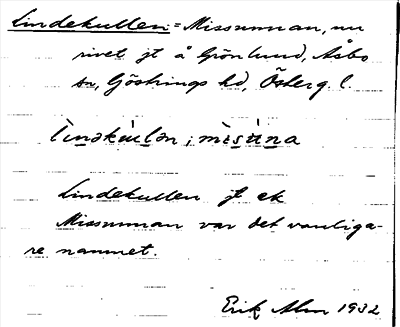 Lindekullen = Missunnan, nu
rivet jt å Grönlund, Åsbo
sn, Göstrings hd, Österg. l.
lìnəkùlən; mìsùna
Lindekullen jt ek
Missunnan var det vanliga-
re namnet.
Erik Alm 1932